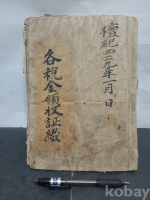 檀紀四二九年一月 日
各税金領收証綴
kobay